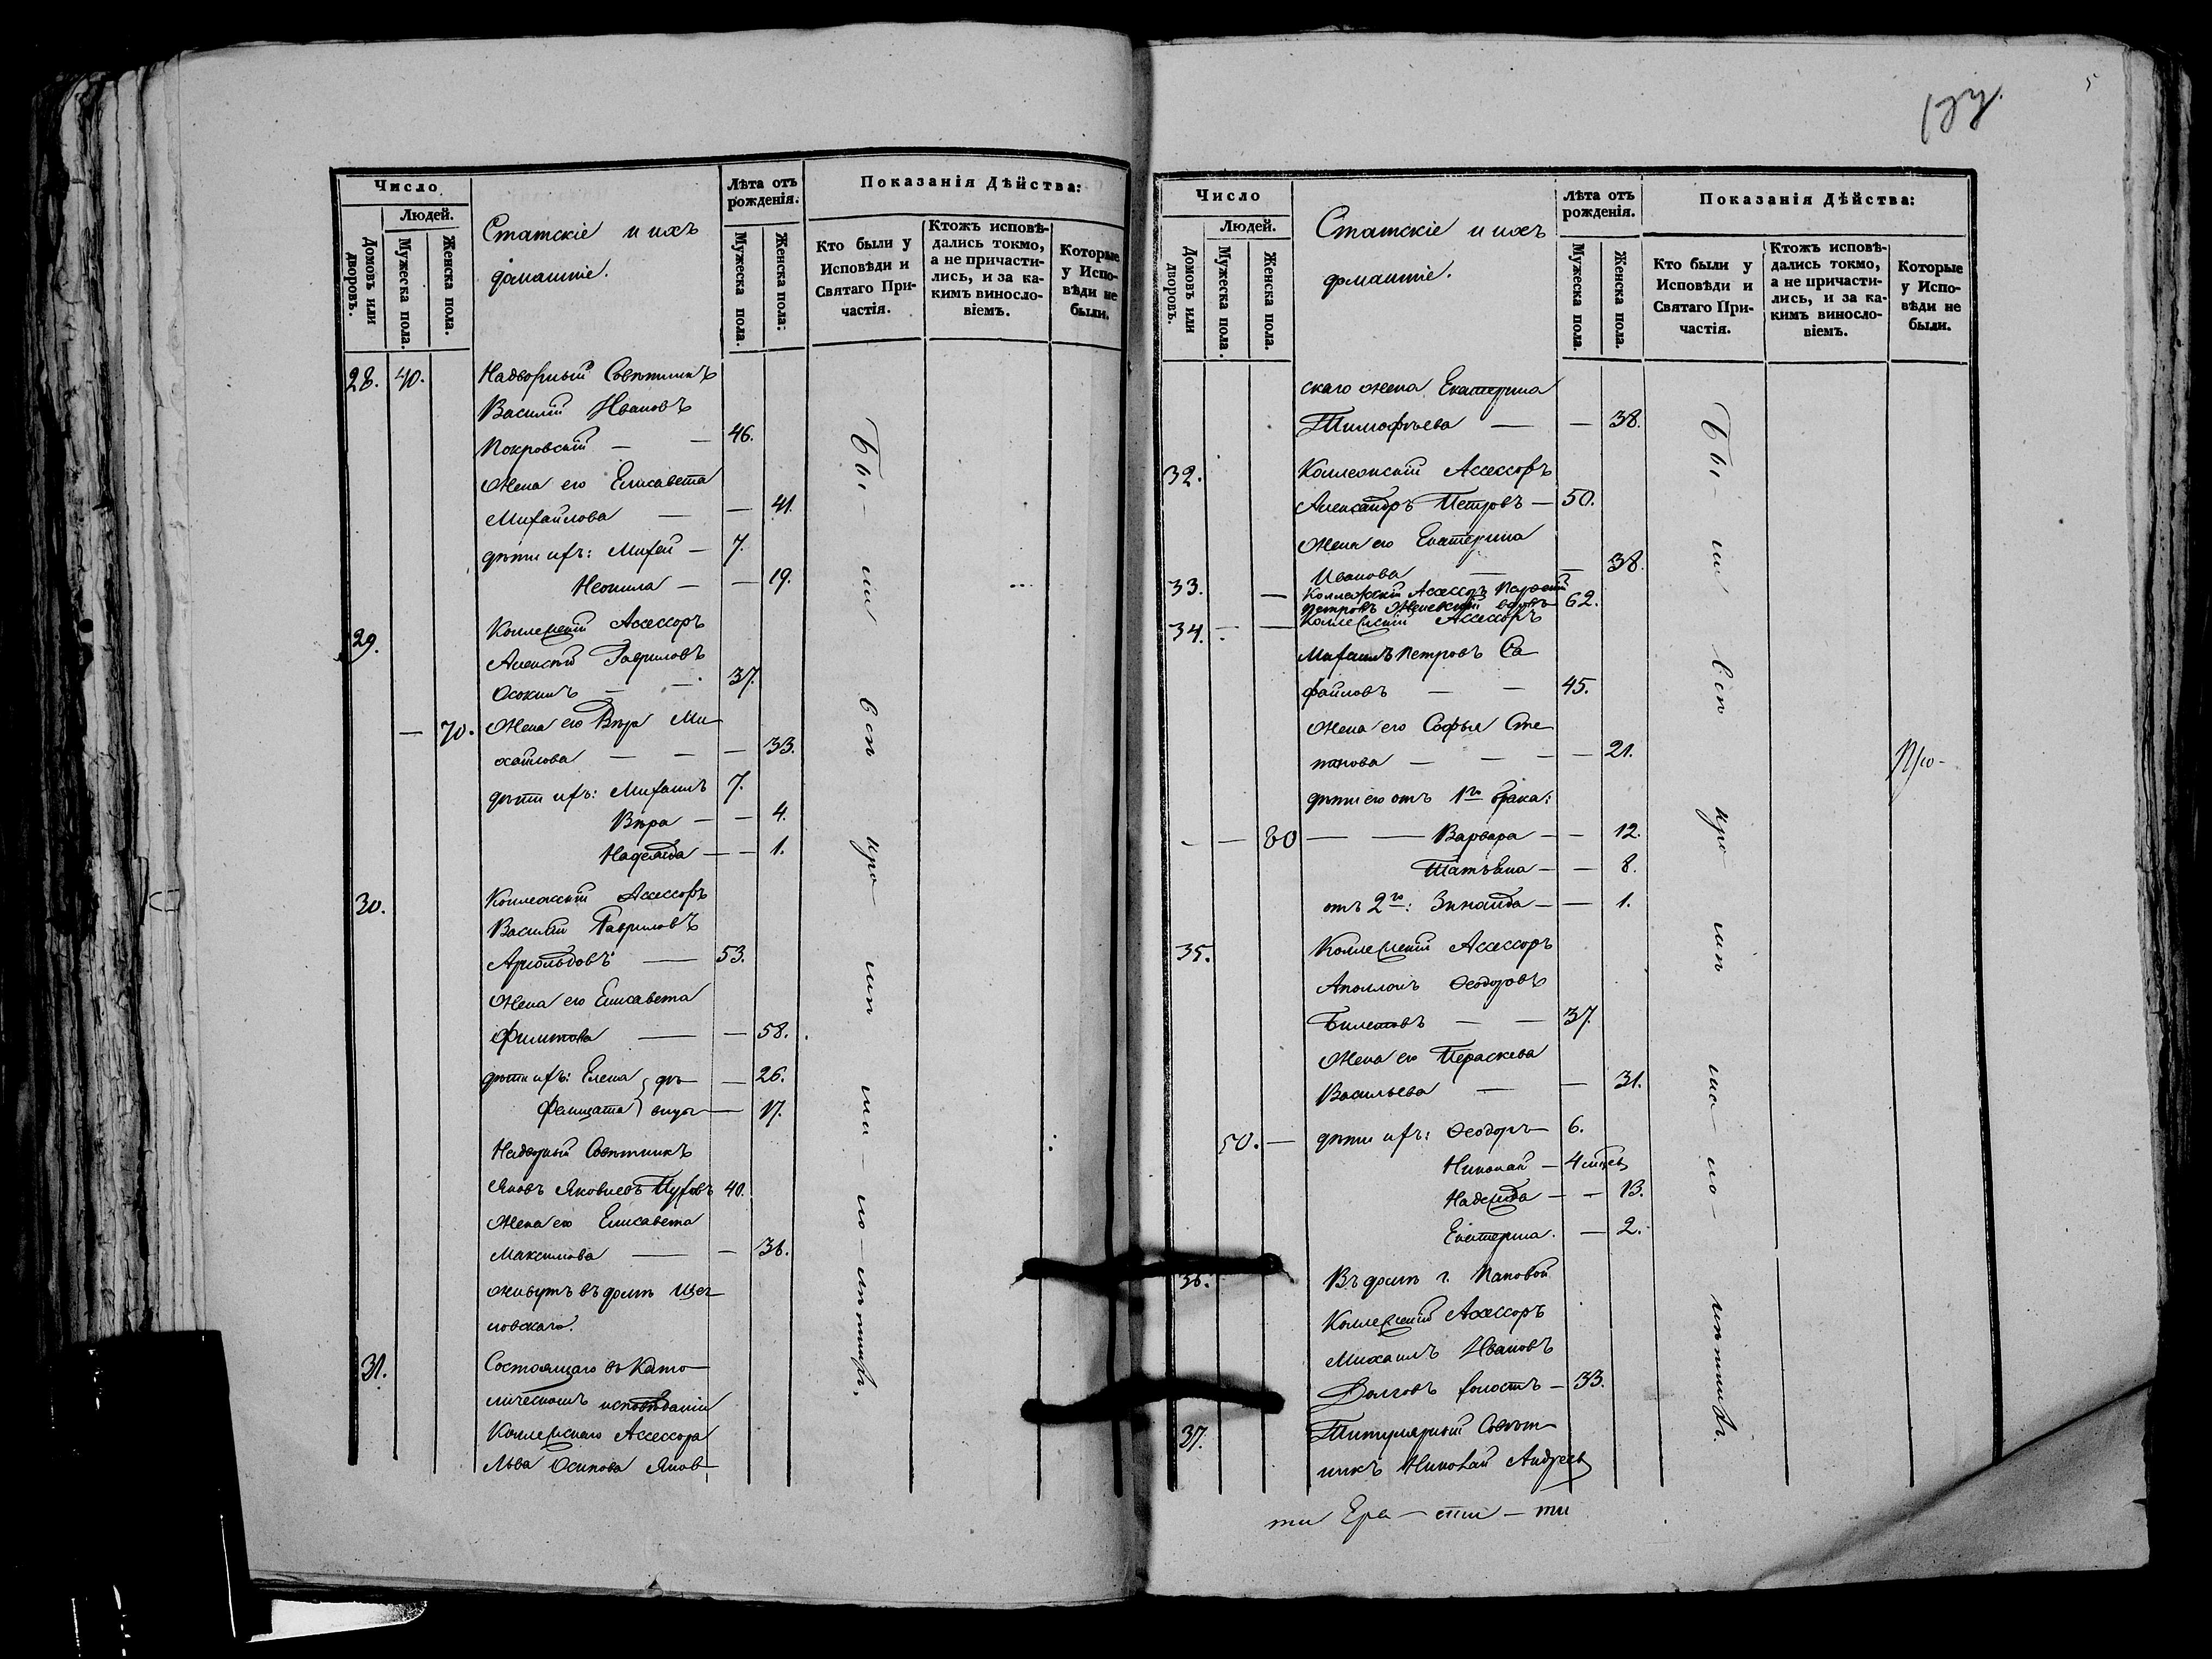 Число
Людей.
Домовъ или дворовъ.
Мужеска пола.
Женска пола.
Статскіе и ихъ
домашніе.
Лѣта отъ рожденія.
Мужеска пола.
Женска пола.
Показанія Дѣйства:
Кто были у Исповѣди и Святаго Причастія.
Ктожъ исповѣдались токмо, а не причастились, и за какимъ винословіемъ.
Которые у Исповѣди не были.
28. 40. Надворный Совѣтникъ
Василій Ивановъ
Покровскій — — 46.
Жена его Елисавета
Михайлова — — 41.
дѣти ихъ: Михей — 7.
Неонила — — 19.
29. Коллежскій Ассессоръ
Алексѣй Гавриловъ
Осокинъ — — 37.
— 70. Жена его Вѣра Ми
хайлова — — — 33.
дѣти ихъ: Михаилъ 7.
Вѣра — — 4.
Надежда — — 1.
30. Коллежскій Ассессоръ
Василій Гавриловъ
Арнольдовъ — 53.
Жена его Елисавета
Филитова — — 58.
дѣти ихъ: Елена } дѣ — 26.
Фелицата } вицы — 17.
Надворный Совѣтникъ
Яковъ Яковлевъ Пуховъ 40.
Жена его Елисавета
Максимова — — 36.
живутъ въ домѣ Щег
ловскаго.
31. Состоящаго въ Като
лическомъ исповѣданіи
Коллежскаго Ассессора
Льва Осипова Янов
Бы - ли всѣ кро - мѣ ма - ло - лѣтнихъ.
5
Число
Людей.
Домовъ или дворовъ.
Мужеска пола.
Женска пола.
Статскіе и ихъ
домашніе.
Лѣта отъ рожденія.
Мужеска пола.
Женска пола.
Показанія Дѣйства:
Кто были у Исповѣди и Святаго Причастія.
Ктожъ исповѣдались токмо, а не причастились, и за какимъ винословіемъ.
Которые у Исповѣди не были.
скаго жена Екатерина
Тимофѣева — — 38.
32. Коллежскій Ассессоръ
Александръ Петровъ — 50.
Жена его Екатерина
Иванова — — 38.
33. — Коллежскій Ассессоръ
Петровъ вдовъ 62.
34. — — Коллежскій Ассессоръ
Михаилъ Петровъ Са
файловъ — — 45.
Жена его Софья Сте
панова — — — — 21.
дѣти его отъ 1го брака:
— — 80 — — Варвара — — 12.
Татьяна — — 8.
отъ 2го: Зинаида — — 1.
35. Коллежскій Ассессоръ
Аполлонъ Ѳеодоровъ
Билетовъ — — 37.
Жена его Параскева
Васильева — — 31.
50. — дѣти ихъ: Ѳеодоръ 6.
Николай — 4
Надежда — — 13.
Екатерина. — 2.
36. Въ домѣ г. Пановой
Коллежскій Ассессоръ
Михаилъ Ивановъ
Долговъ холостъ — 33.
37. Титулярный Совѣт
никъ Николай Андреев
Бы - ли всѣ кро - мѣ ма - ло - лѣтнихъ.
Про -